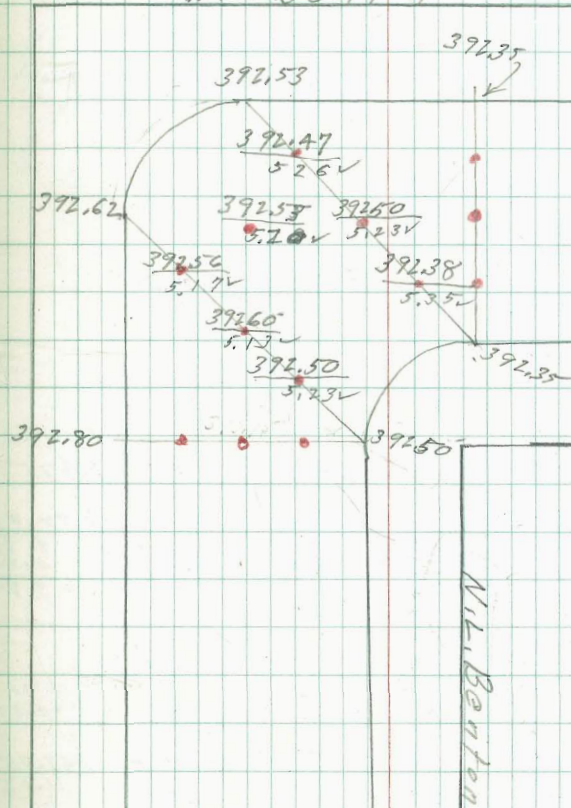 392.35
392.53
392.47
5.26✓
392.62
392.53
5.20✓
39250
5.23✓
39256
5.17✓
392.38
5.35✓
39260
5.13✓
392.50
5.23✓
392.35
392.80
39250
N.L. Benton